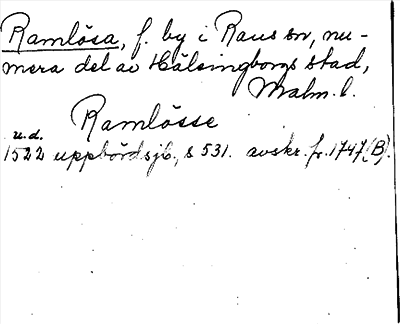 Ramlösa, f. by i Raus sn, nu-
mera del av Hälsingborgs stad,
Malm. l.
Ramlösse
u.d.
1522 uppbördsjb., s 531. avskr. fr. 1747 (B).